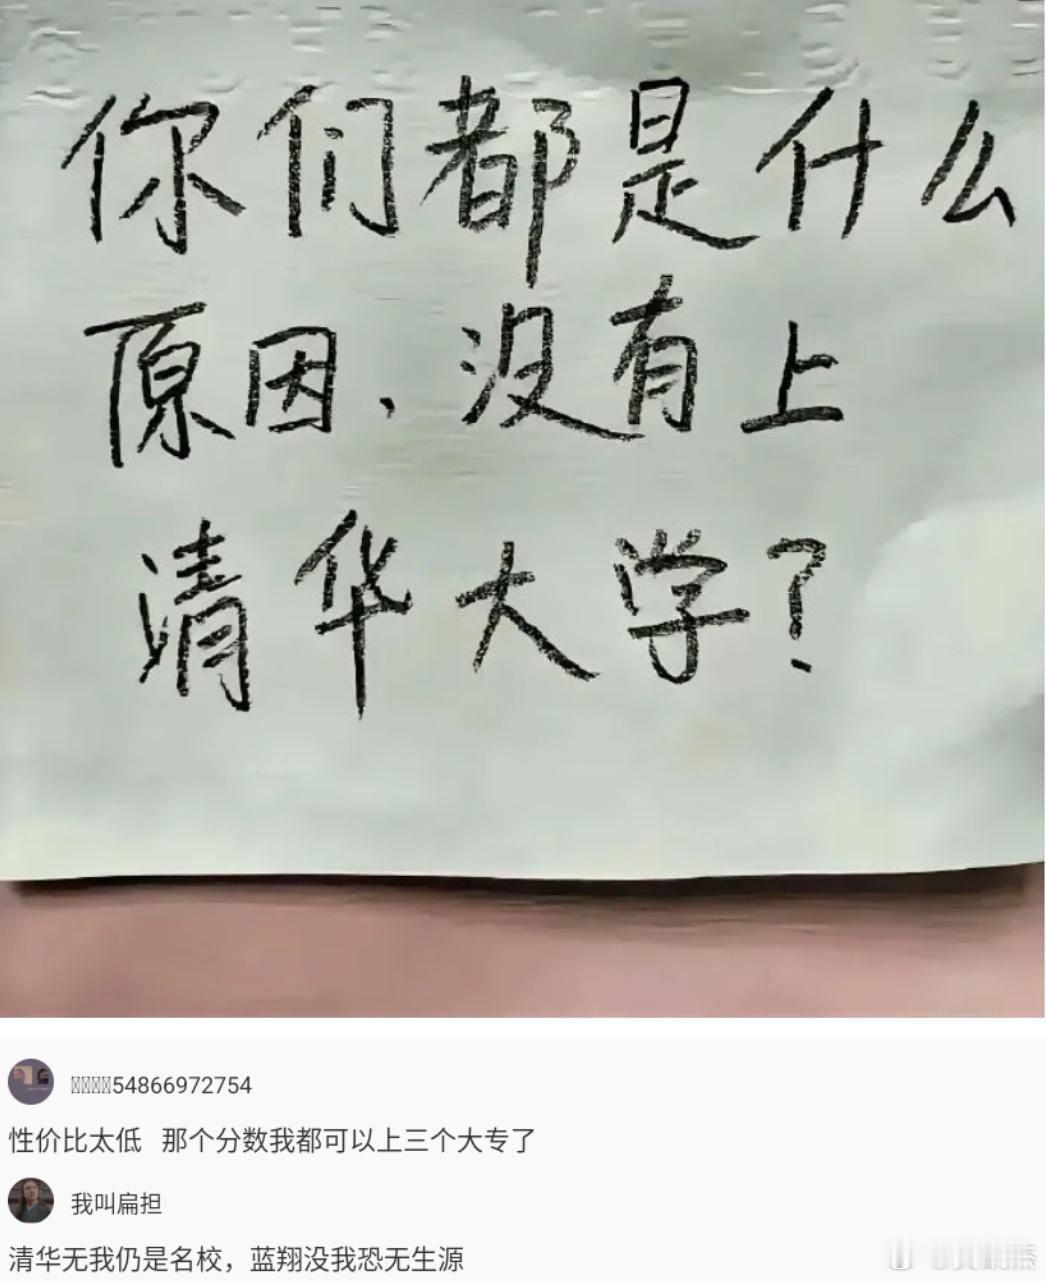 你们都是什么
原因、没有上
清华大学?
54866972754
性价比太低 那个分数我都可以上三个大专了
我叫扁担
清华无我仍是名校，蓝翔没我恐无生源